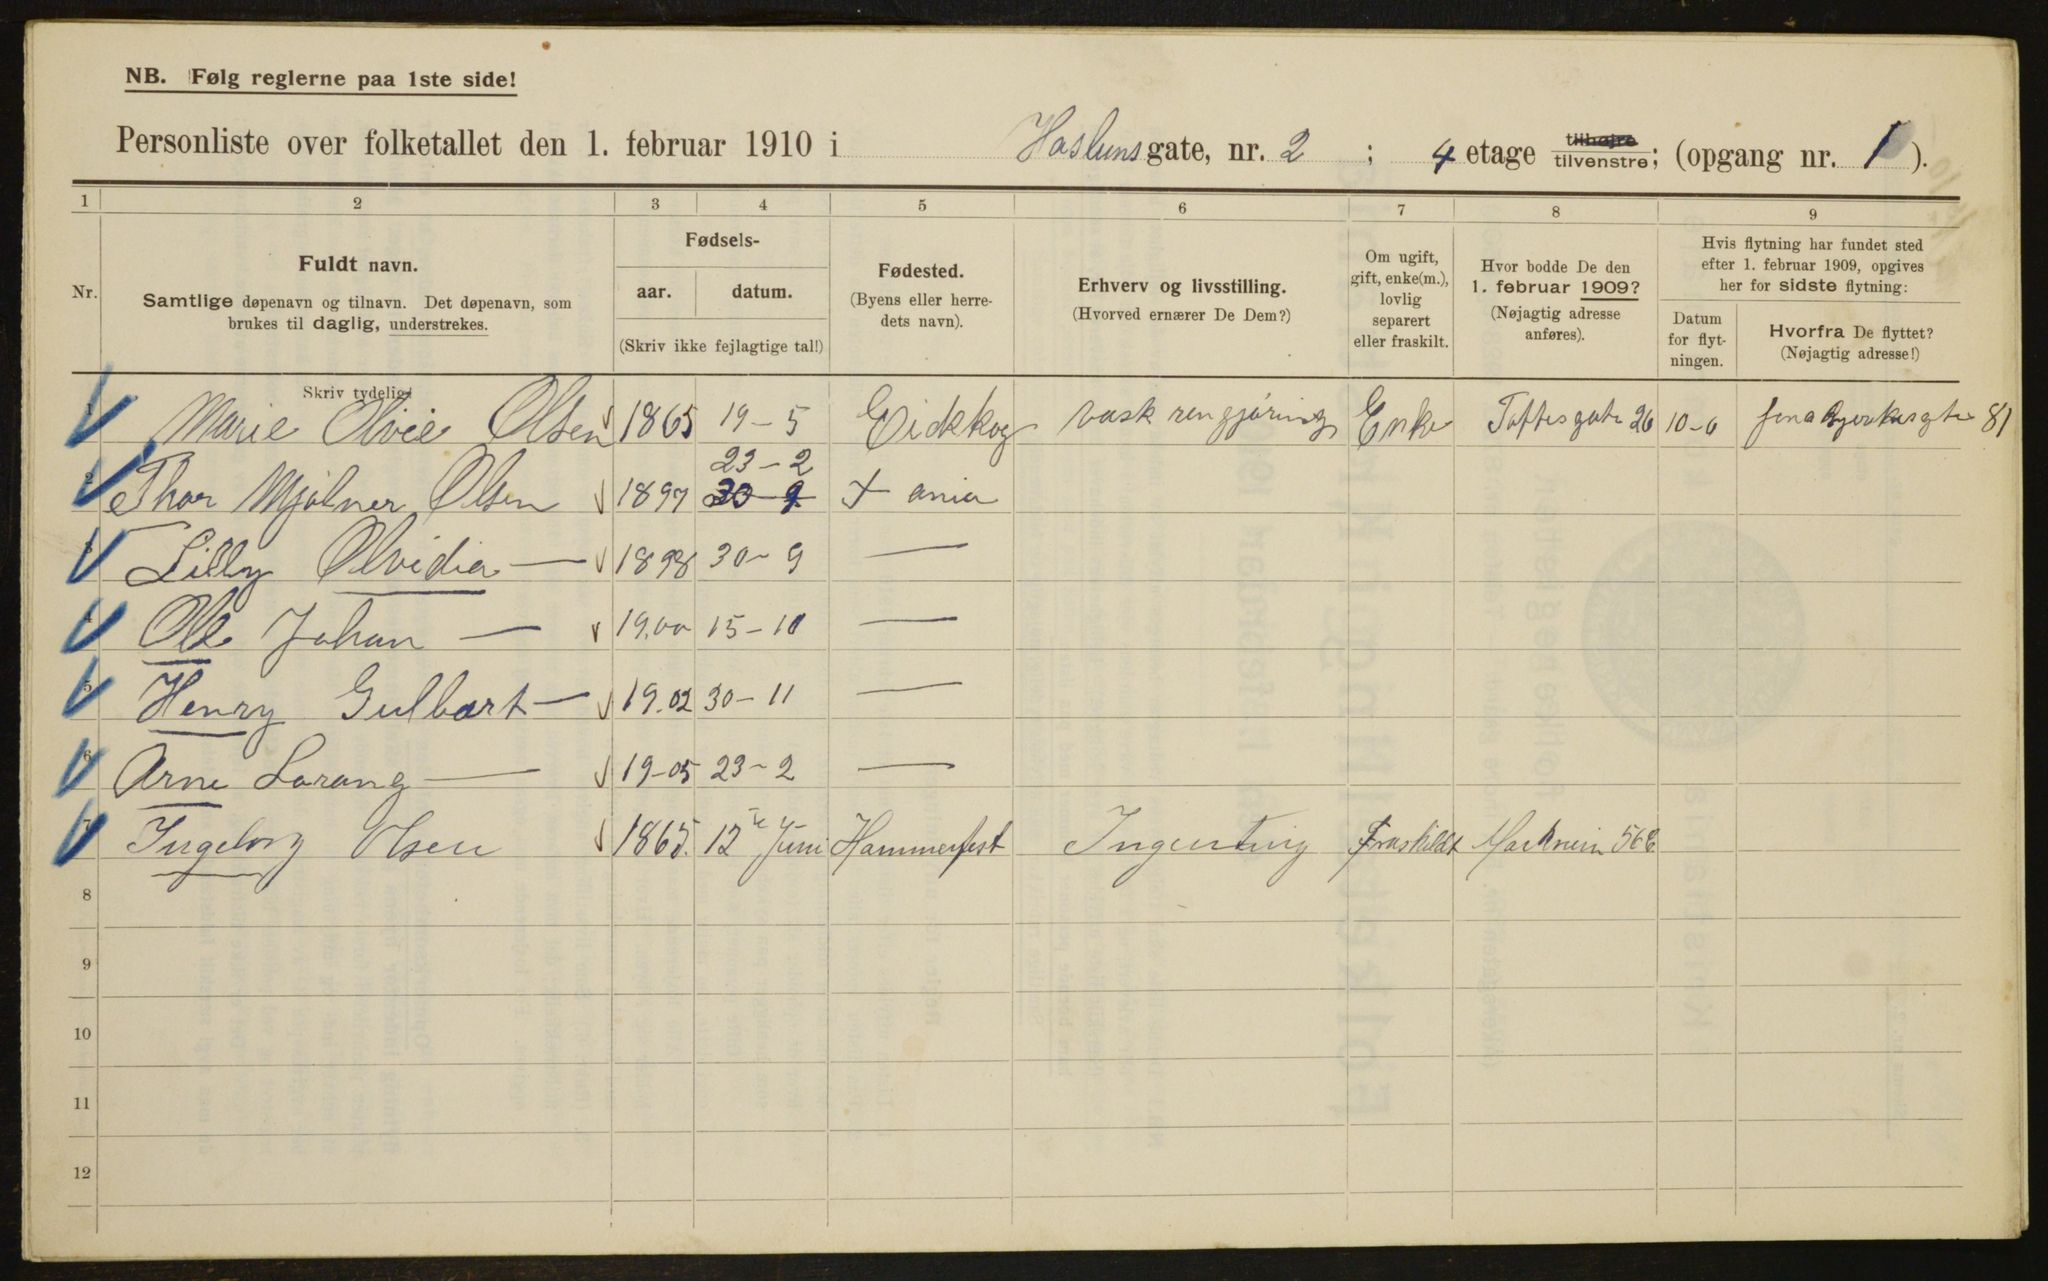 NB. Følg reglerne paa 1ste side!
Personliste over folketallet den 1. februar 1910 i Haslunsgate, nr. 2 ; 4 etage tilhøjre tilvenstre; (opgang nr. 1 ).
1 2 3 4 5 6 7 8 9
Nr.
Fuldt navn.
Samtlige døpenavn og tilnavn. Det døpenavn, som
brukes til daglig, understrekes.
Fødsels-
aar. datum.
(Skriv ikke fejlagtige tal!)
Fødested.
(Byens eller herre-
dets navn).
Erhverv og livsstilling.
(Hvorved ernærer De Dem?)
Om ugift,
gift, enke(m.),
lovlig
separert
eller fraskilt.
Hvor bodde De den
1. februar 1909?
(Nøjagtig adresse
anføres).
Hvis flytning har fundet sted
efter 1. februar 1909, opgives
her for sidste flytning:
Datum
for flyt-
ningen.
Hvorfra De flyttet?
(Nøjagtig adresse!)
Skriv tydelig!
1 Marie Olvie Olsen 1865 19-5 Eidskog vask rengjøring Enke Toftesgate 26 10-6 81
2 Thor Mjølner Olsen 1897 23-2 30-9 X ania
3 Lilly Olvidia — 1898 30-9 —
4 Ole Johan — 19.00 15-10 —
5 Henry Gulbart — 19.02 30-11 —
6 Arne Lorang — 19-05 23-2 —
7 Ingeborg Olsen 1865. 12te Juni Hammerfest Ingenting Fraskildt Markvein 56
8
9
10
11
12